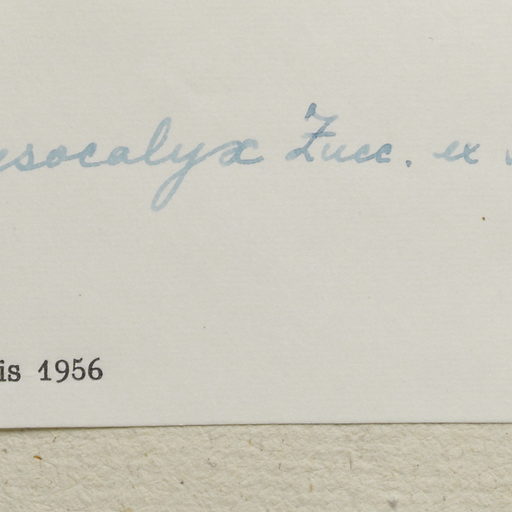 ysocalyx Zucc. ex
is 1956